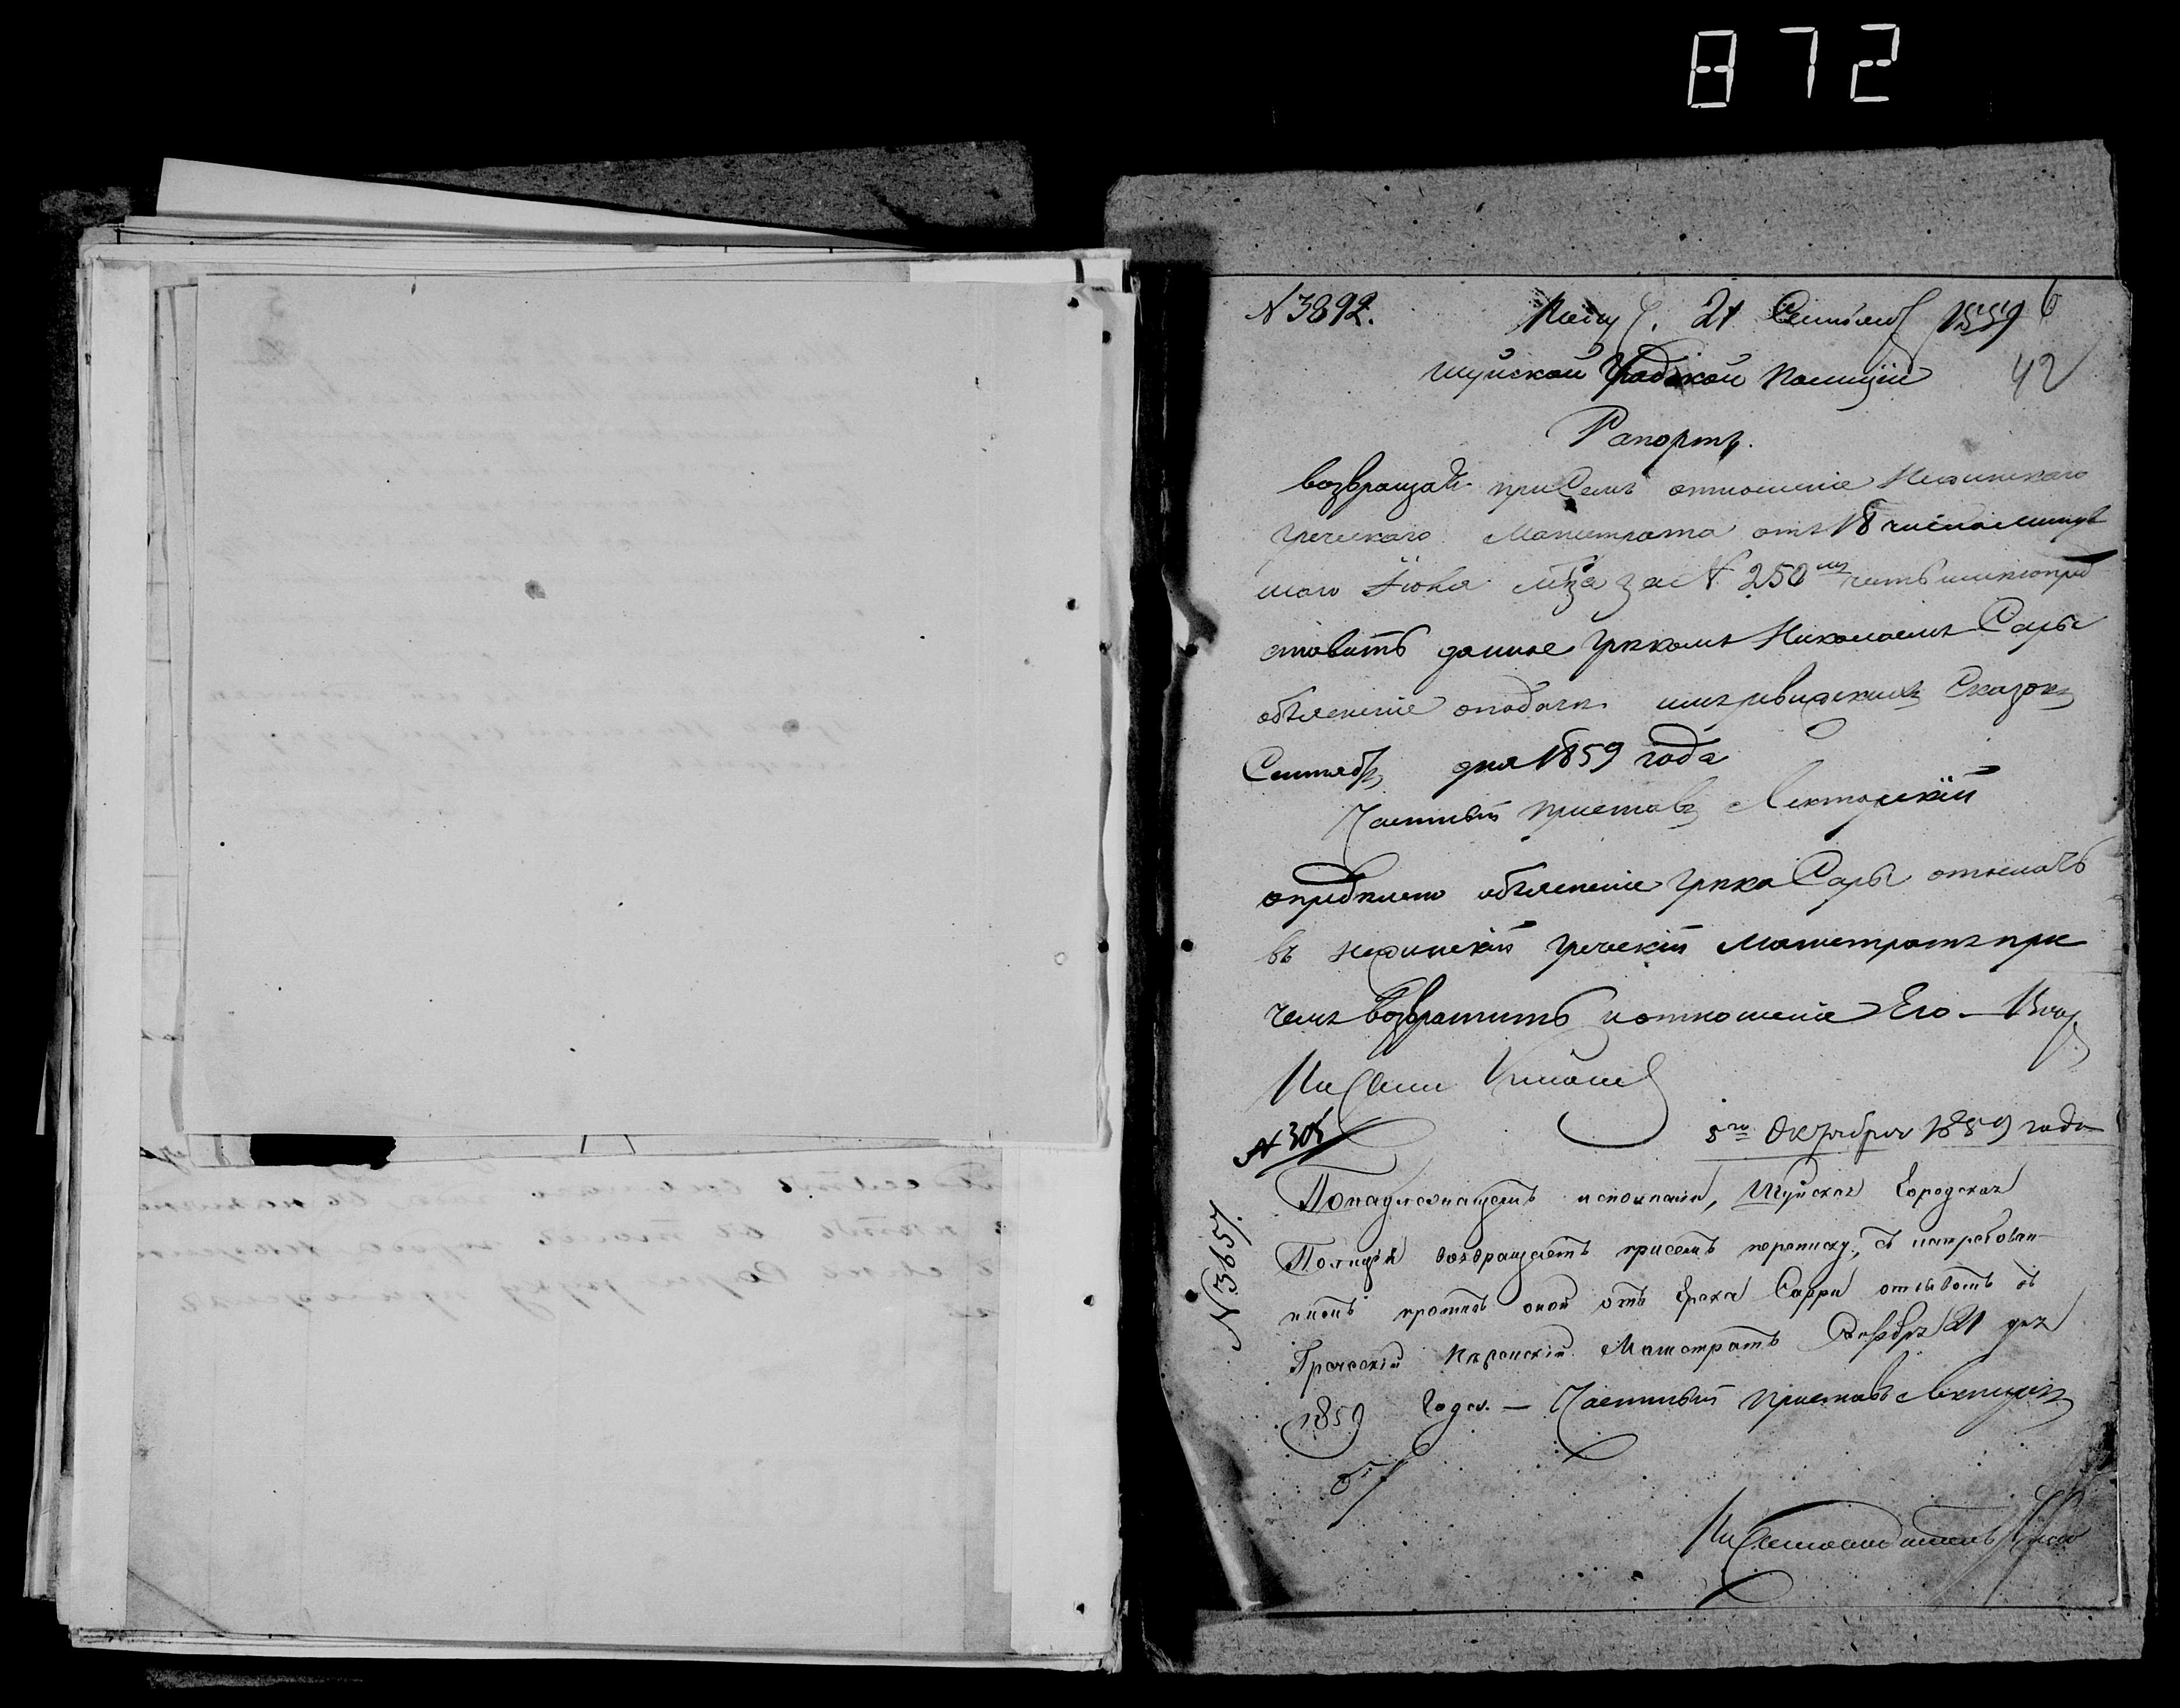 872
N 3892.
Получ. 21 Сентября 1859
6
42
Шуйской Градской Полиціи
Рапортъ.
возвращая при Семъ отношеніе Нежинского
Греческаго Магистрата отъ 18 числа минув
шаго Іюня м-ца за N 250мъ честь имею пред
ставить данное Грекомъ Николаемъ Сары
объясненіе о подачи имъ ревизскихъ Сказокъ
Сентябр дня 1859 года
Частный Приставъ
определено объясненіе Грека Сары отослать
въ Нежинскій Греческій Магистратъ при
чемъ возвратить и отношеніе Его —
N 305
5го Октября 1859 года
N 3657.
По надлежащемъ исполненіи, Шуйская Городская
Полиція возвращаетъ присемъ переписку, съ истребован-
нымъ противъ оной отъ Грека Сарри отзывомъ въ
Греческій Нѣжинскій Магистратъ 21 дня
1859 Года. — Частный Приставъ